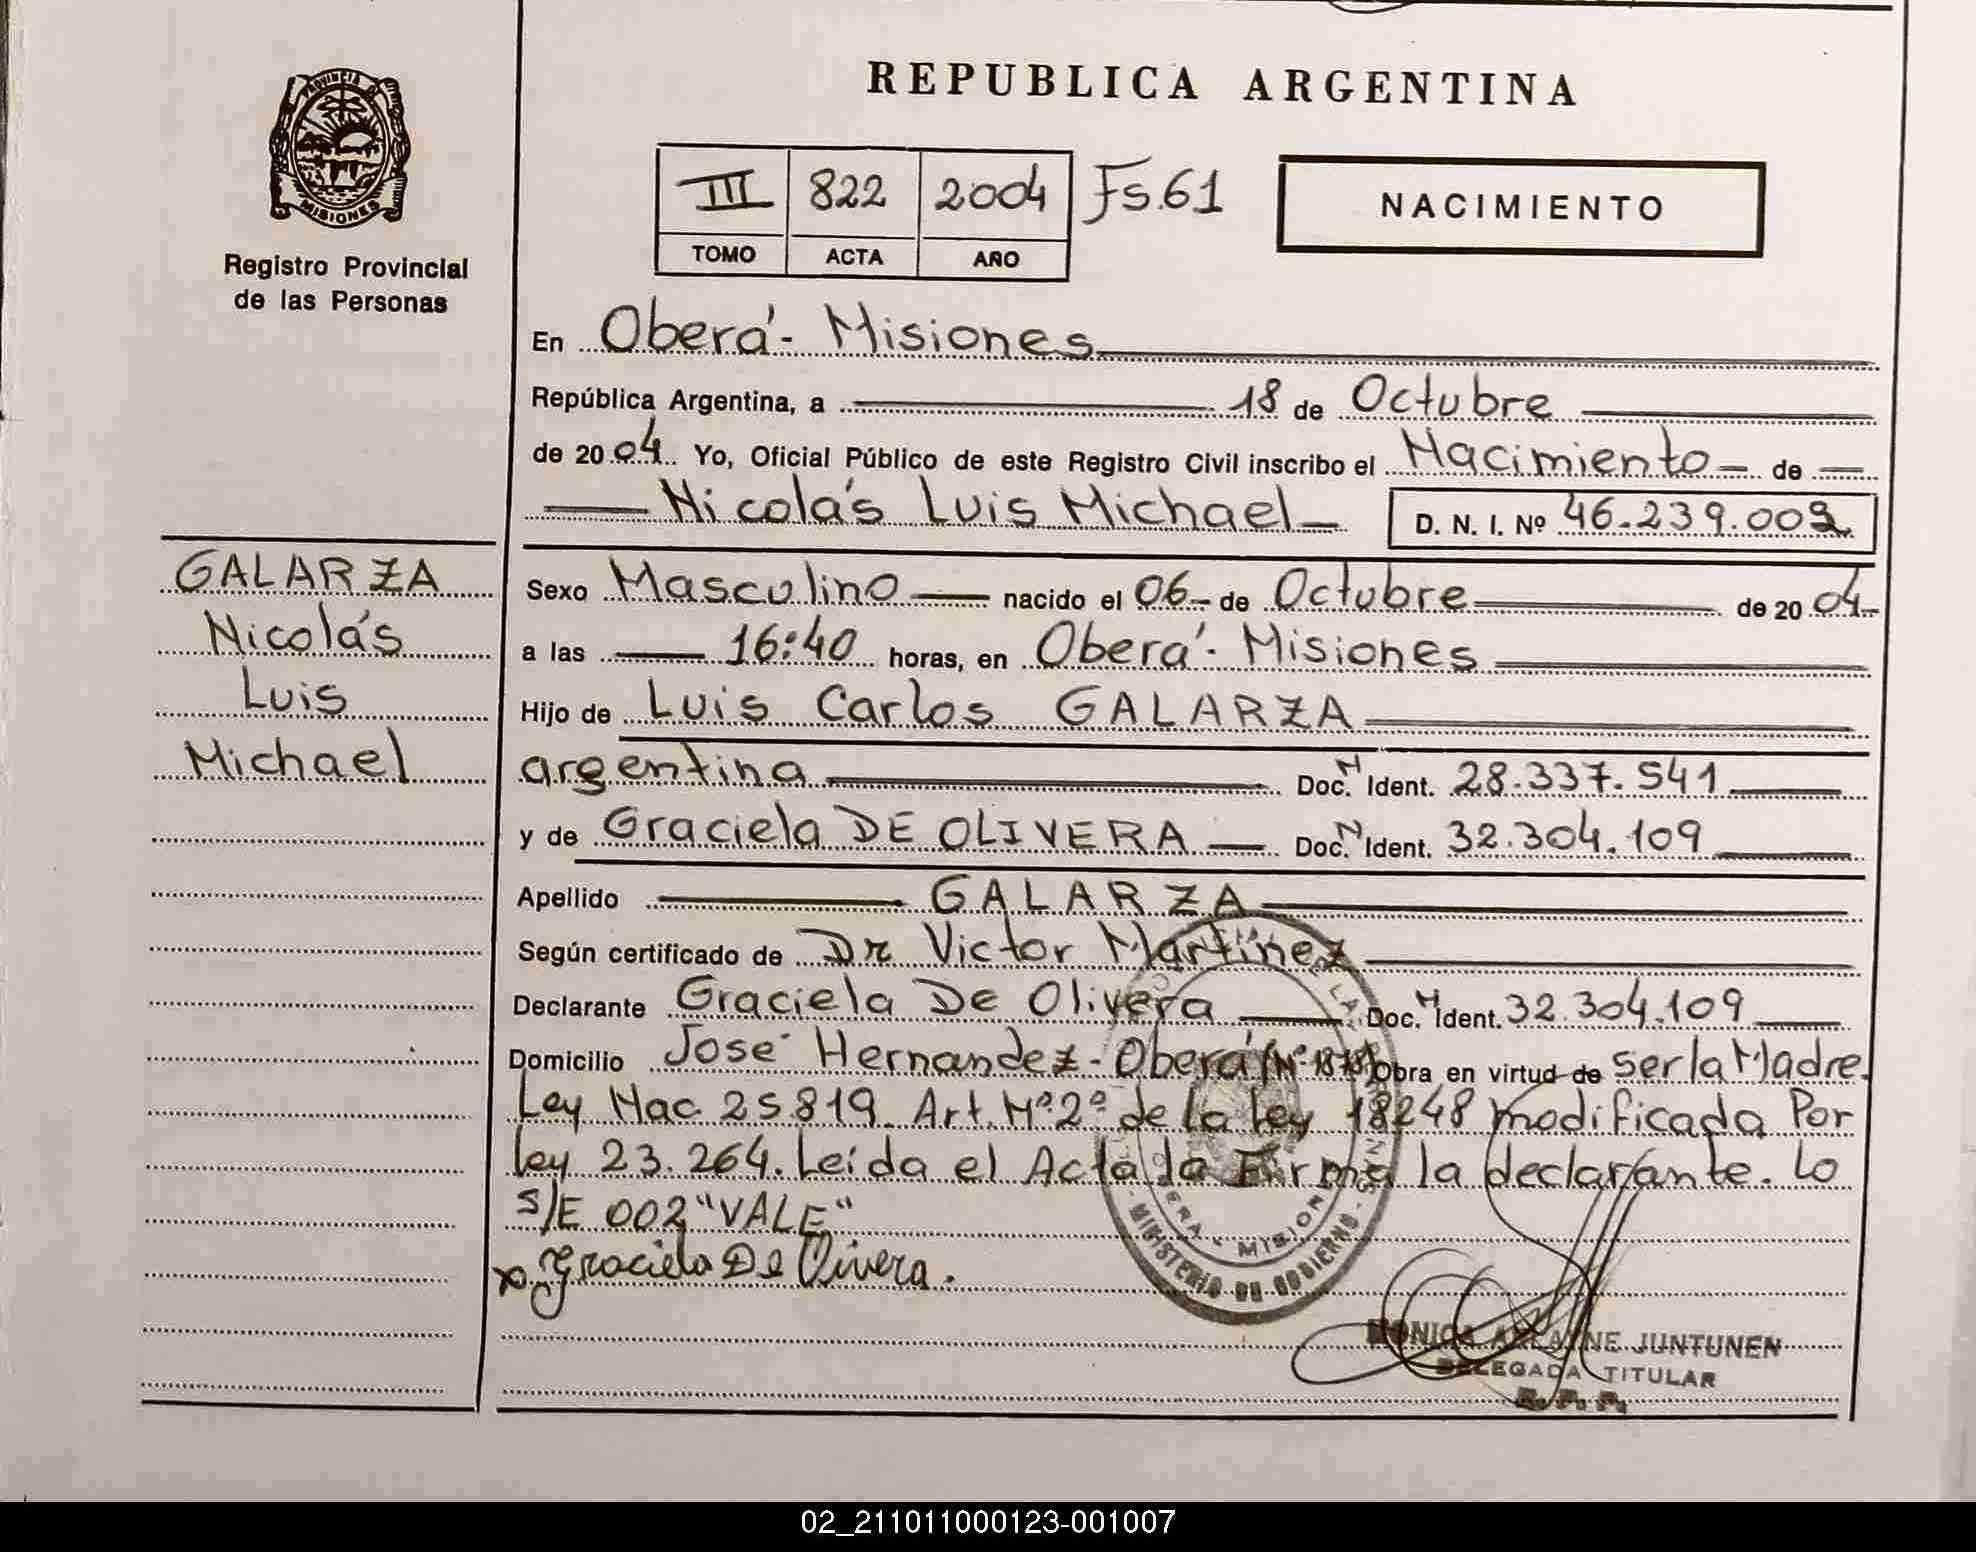 REPUBLICA ARGENTINA
PROVINCIA D
MISIONES
Registro Provincial
de las Personas
III 822 2004 Fs.61
TOMO ACTA AÑO
NACIMIENTO
En Oberá - Misiones
República Argentina, a 18 de Octubre
de 2004 Yo, Oficial Público de este Registro Civil inscribo el Nacimiento de
Nicolás Luis Michael D. N. I. Nº 46.239.002
GALARZA
Nicolás
Luis
Michael
Sexo Masculino nacido el 06 de Octubre de 2004
a las 16:40 horas, en Oberá - Misiones
Hijo de Luis Carlos GALARZA
argentina Doc. N Ident. 28.337.541
y de Graciela DE OLIVERA Doc. N Ident. 32.304.109
Apellido GALARZA
Según certificado de Dr Victor Martinez
Declarante Graciela De Olivera Doc. N Ident. 32.304.109
Domicilio José Hernandez - Oberá (Nº 1878) Obra en virtud de ser la Madre.
Ley Nac. 25819. Art. Nº 2º de la ley 18248 modificada Por
ley 23.264. Leída el Acta la Firma la declarante. Lo
S/E 002 "VALE"
x Graciela De Olivera.
MINISTERIO DE GOBIERNO
OBERA - MISIONES
MONICA ARLAINE JUNTUNEN
DELEGADA TITULAR
R. P. P.
02_211011000123-001007